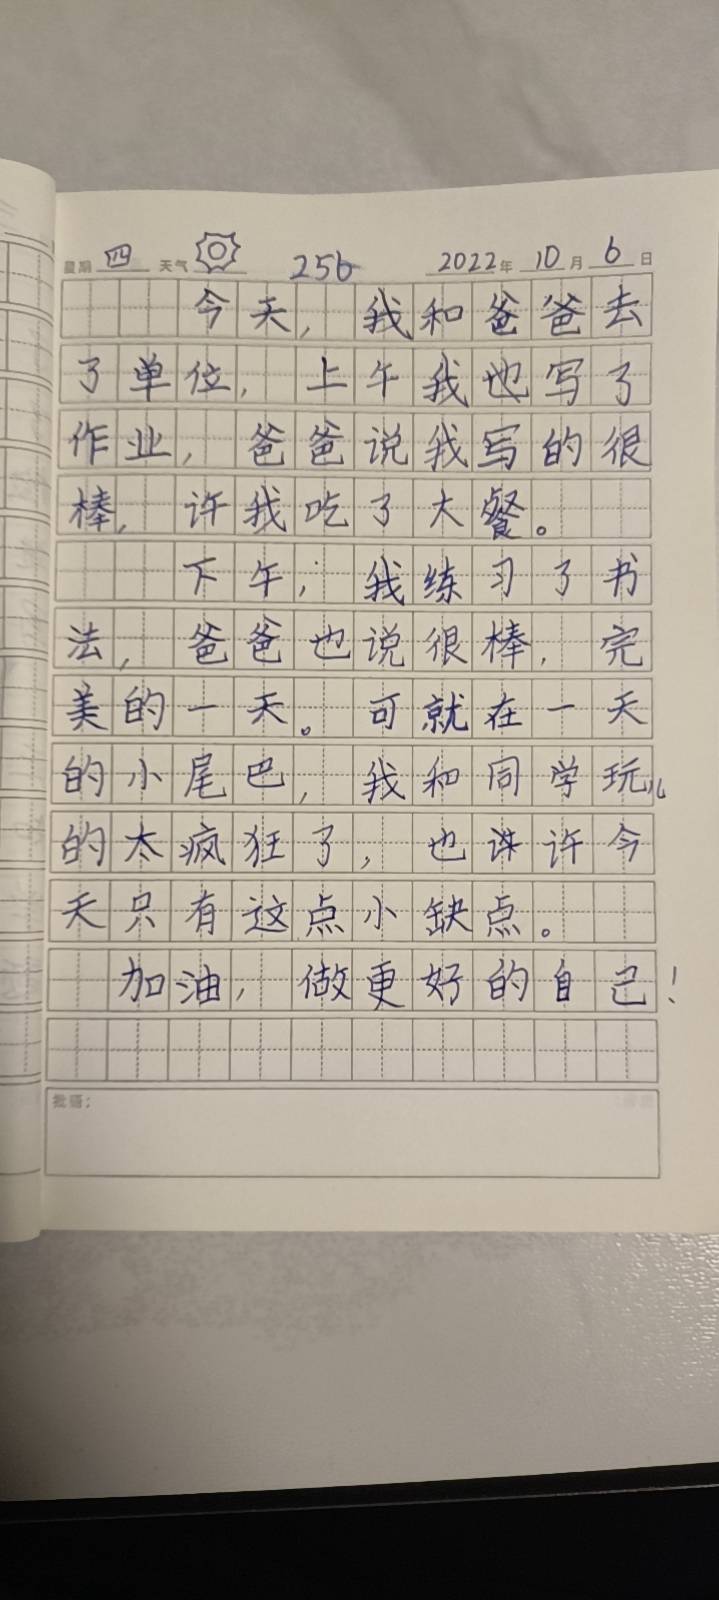 星期 四 天气 256 2022年 10月 6日
今天,我和爸爸去
了单位,上午我也写了
作业,爸爸说我写的很
棒,许我吃了大餐。
下午,我练习了书
法,爸爸也说很棒,完
美的一天。可就在一天
的小尾巴,我和同学玩儿
的太疯狂了,也许许今
天只有这点小缺点。
加油,做更好的自己!
批语: